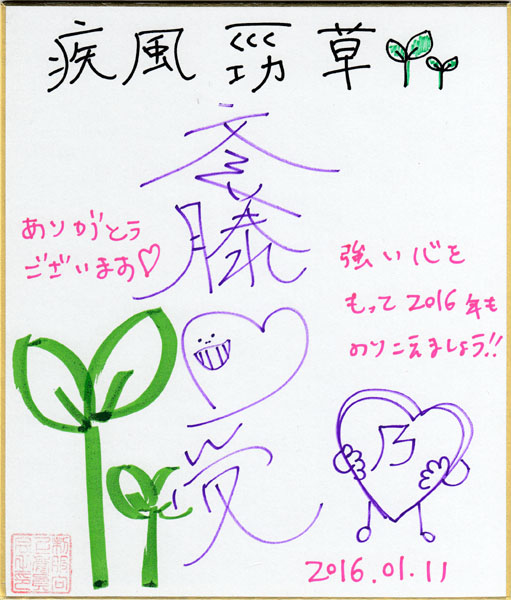 疾風勁草
ありがとう
ございます♡
強い心を
もって2016年も
のりこえましょう!!
乃
2016.01.11